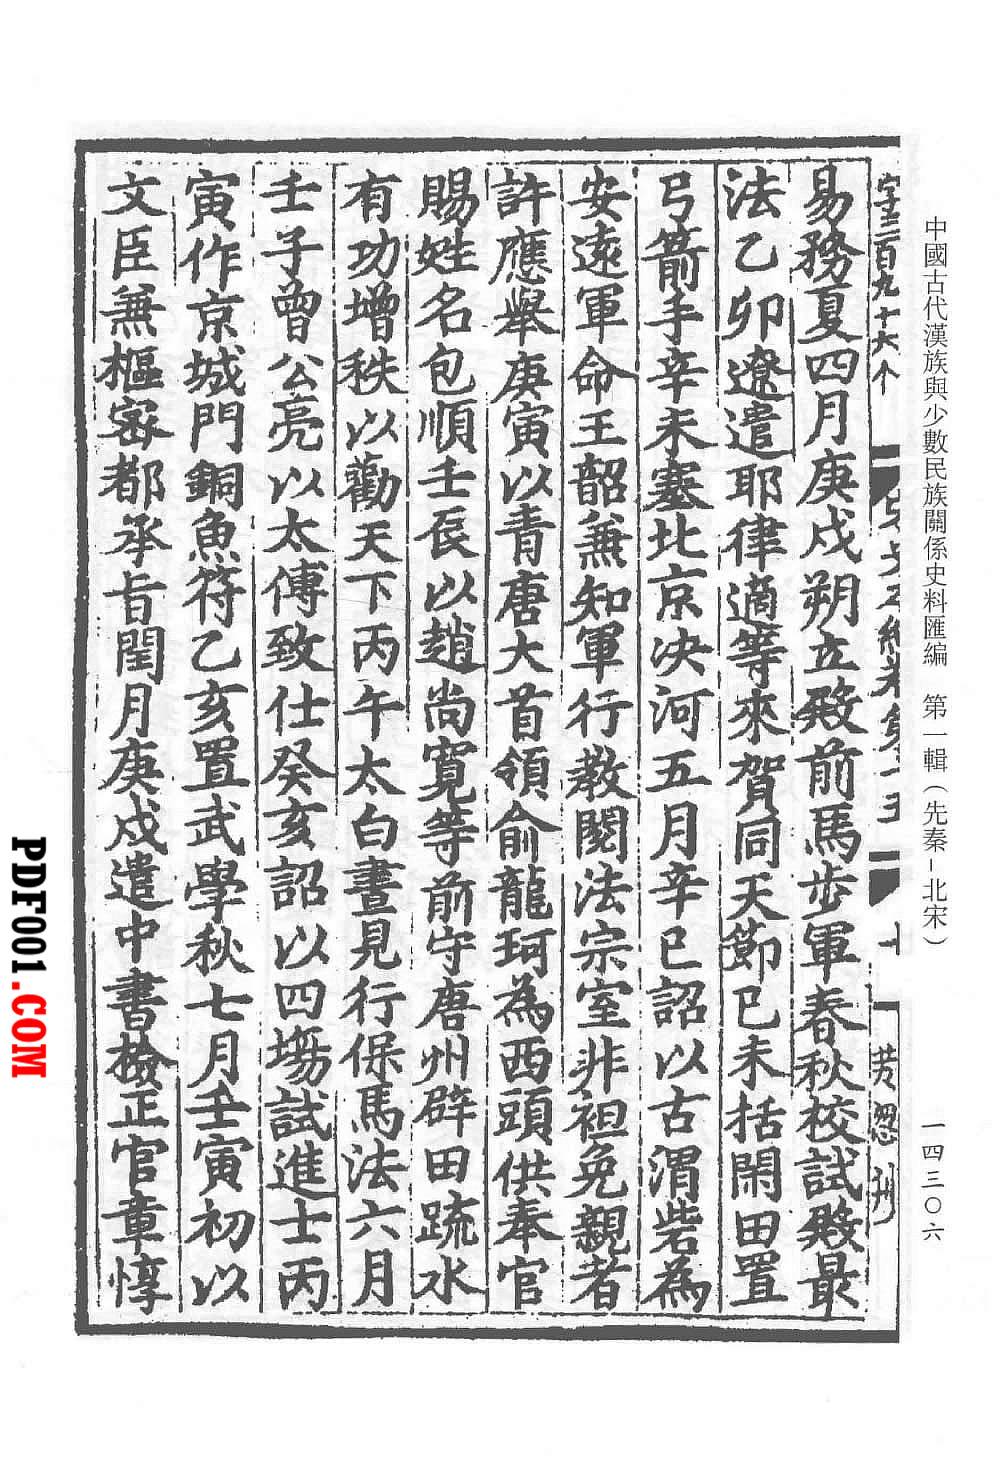 中國古代漢族與少數民族關係史料匯編 第一輯（先秦－北宋）
一四三〇六
字三百九十六个
易務夏四月庚戌朔立殿前馬步軍春秋校試殿最
法乙卯遼遣耶律適等來賀同天節已未括閑田置
弓箭手辛未塞北京決河五月辛巳詔以古渭砦為
安遠軍命王韶兼知軍行教閱法宗室非袒免親者
許應舉庚寅以青唐大首領俞龍珂為西頭供奉官
賜姓名包順壬辰以趙尚寬等前守唐州辟田疏水
有功增秩以勸天下丙午太白晝見行保馬法六月
壬子曾公亮以太傅致仕癸亥詔以四場試進士丙
寅作京城門銅魚符乙亥置武學秋七月壬寅初以
文臣兼樞密都承旨閏月庚戌遣中書檢正官章惇
PDF001.COM